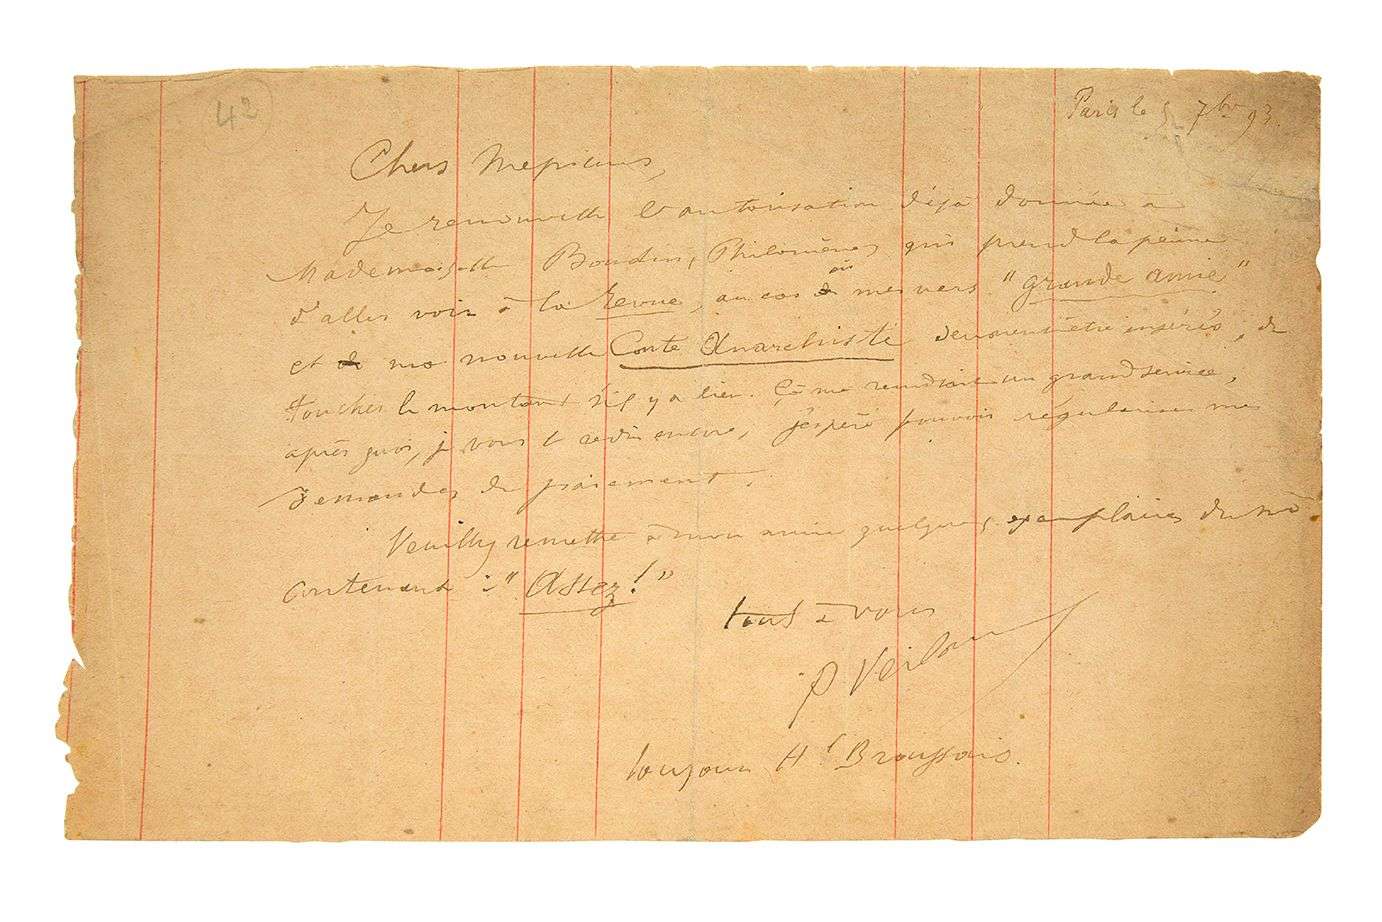 42
Paris le 5 7bre 93.
Chers Messieurs,
Je renouvelle l'autorisation déjà donnée à
Mademoiselle Boudin, Philomène, qui prend la peine
d'aller voir à la Revue, au cas où mes vers "grande amie"
et ma nouvelle Conte Anarchiste devraient être insérés, de
toucher le montant s'il y a lieu. Çà me rendrait un grand service,
après quoi, je vous le redis encore, j'espère pouvoir régulariser mes
demandes de paiement.
Veuillez remettre à mon amie quelques exemplaires du no
contenant : "Assez!"
tout à vous
P Verlaine
toujours Hl Broussais.